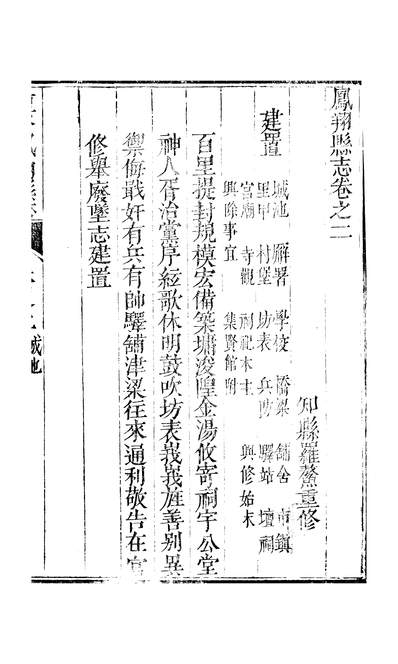 鳳翔縣志卷之二
知縣羅鰲重修
建置
城池 廨署 學校 橋梁 鋪舍 市鎭
里甲 村堡 坊表 兵防 驛站 壇祠
宮廟 寺觀 祠祀木主 興修始末
興除事宜 集賢館附
百里提封規模宏備築墉浚隍金湯攸寄祠宇公堂
神人胥洽黨序絃歌休明鼓吹坊表峩峩旌善別異
禦侮戢奸有兵有帥驛舖津梁往來通利敬告在官
修舉廢墜志建置
城池